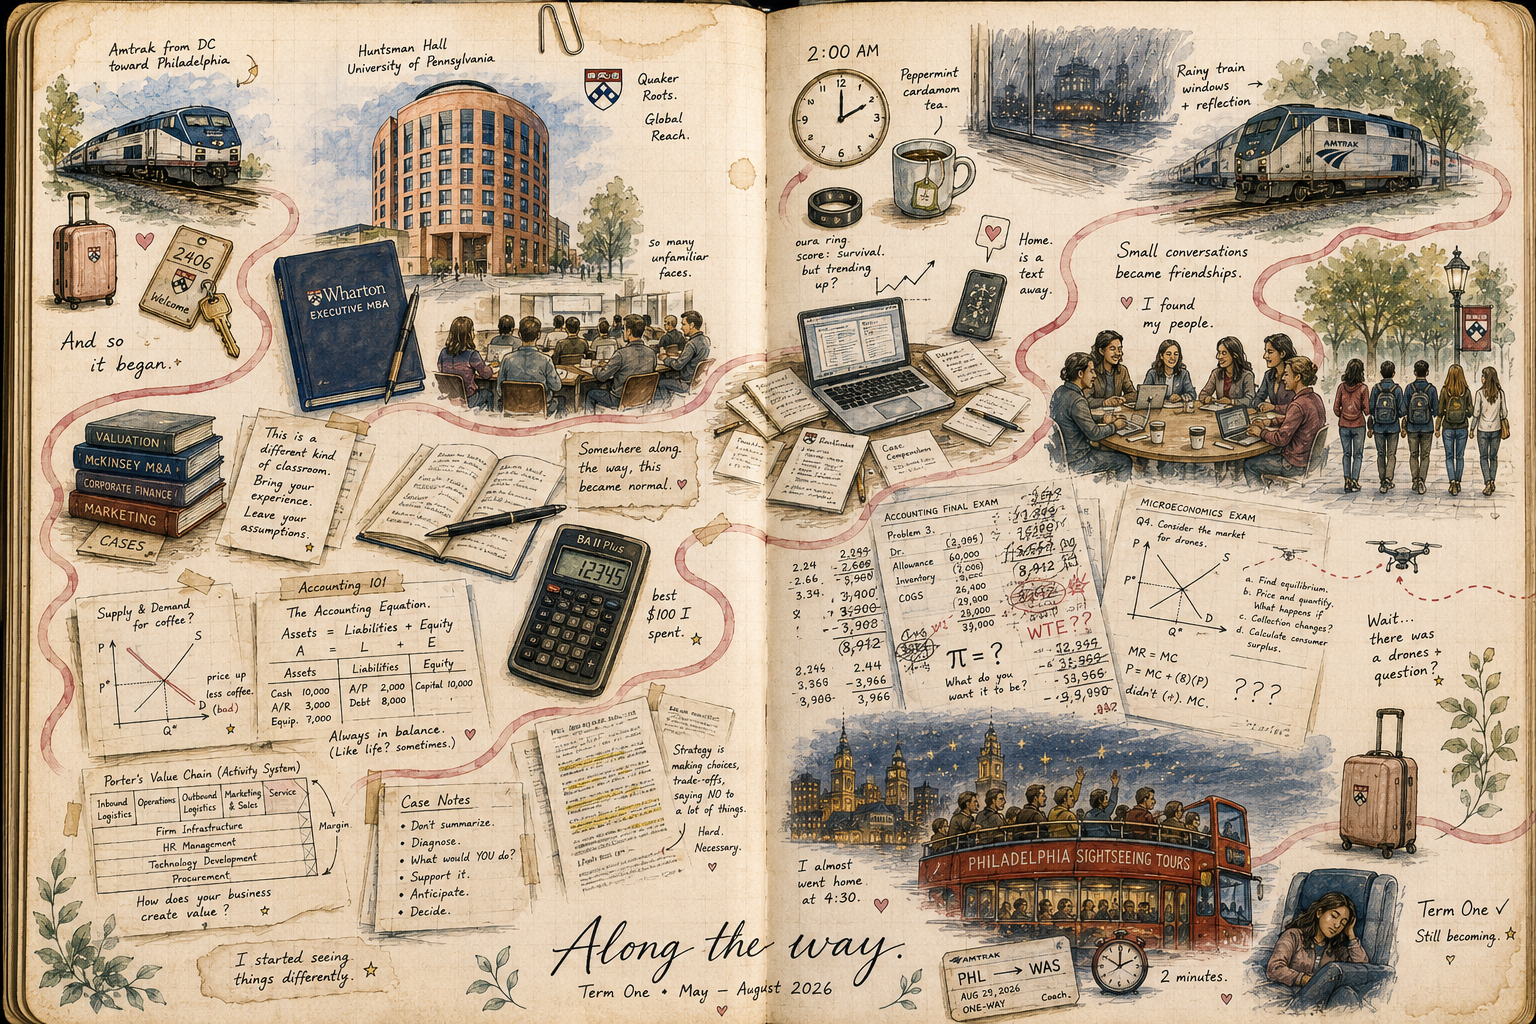 Amtrak from DC
toward Philadelphia
Huntsman Hall
University of Pennsylvania
Quaker
Roots.
Global
Reach.
2406
Welcome
And so
it began.
Wharton
EXECUTIVE MBA
so many
unfamiliar
faces.
VALUATION
McKINSEY M&A
CORPORATE FINANCE
MARKETING
CASES
This is a
different kind
of classroom.
Bring your
experience.
Leave your
assumptions.
Somewhere along
the way, this
became normal.
BA II Plus
12345
best
$100 I
spent.
Supply & Demand
for coffee?
P
S
P*
D
Q*
price up
less coffee.
(bad)
Accounting 101
The Accounting Equation.
Assets = Liabilities + Equity
A = L + E
Assets Liabilities Equity
Cash 10,000 A/P 2,000 Capital 10,000
A/R 3,000 Debt 8,000
Equip. 7,000
Always in balance.
(Like life? sometimes.)
Porter's Value Chain (Activity System)
Inbound
Logistics
Operations
Outbound
Logistics
Marketing
& Sales
Service
Firm Infrastructure
HR Management
Technology Development
Procurement
Margin.
How does your business
create value ?
Case Notes
• Don't summarize.
• Diagnose.
• What would YOU do?
• Support it.
• Anticipate.
• Decide.
Strategy is
making choices,
trade-offs,
saying NO to
a lot of things.
Hard.
Necessary.
I started seeing
things differently.
2:00 AM
12
1
2
3
4
5
6
7
8
9
10
11
Peppermint
cardamom
tea.
Rainy train
windows
+ reflection
AMTRAK
oura ring
score: survival.
but trending
up?
Home.
is a
text
away.
Small conversations
became friendships.
I found
my people.
ACCOUNTING FINAL EXAM
Problem 3.
Dr. (2,995)
Allowance 60,000
Inventory
COGS 26,400
29,000
39,000
8,912
WTE??
π = ?
What do you
want it to be?
2.24
-2.66
3.34
(8,912
2.44
-3,966
3,966
MICROECONOMICS EXAM
Q4. Consider the market
for drones.
P
S
P*
D
Q*
a. Find equilibrium.
b. Price and quantity.
What happens if
c. Collection changes?
d. Calculate consumer
surplus.
MR = MC
P = MC + (8)(P)
didn't (+). MC.
? ? ?
Wait...
there was
a drones +
question?
PHILADELPHIA SIGHTSEEING TOURS
I almost
went home
at 4:30.
AMTRAK
PHL → WAS
AUG 29, 2026
ONE-WAY Coach.
2 minutes.
Term One ✓
Still becoming.
Along the way.
Term One • May — August 2026